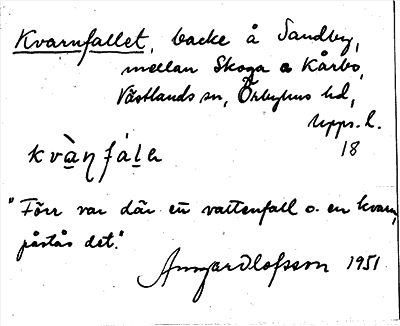 Kvarnfallet, backe å Sandby,
mellan Skoga o Kårbo,
Västlands sn, Örbyhus hd,
Upps. l.
18
kvàηfàlɘ
"Förr var där ett vattenfall o. en kvarn,
påstås det."
Olofsson 1951